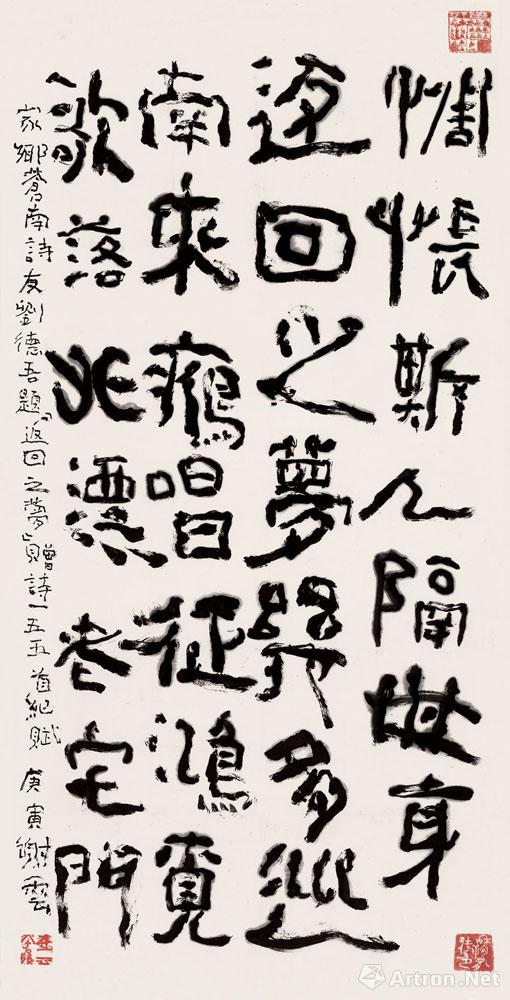 惆悵斯人隔世身
返回之夢多從
南來唱征鴻覓
歌落北漂老宅門
家鄉蒼南詩友劉德吾題「返回之夢」見贈詩一五五首紀賦 庚寅 謝雲
Artron.Net